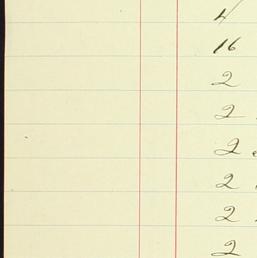 4
16
2
2
2
2
2
2